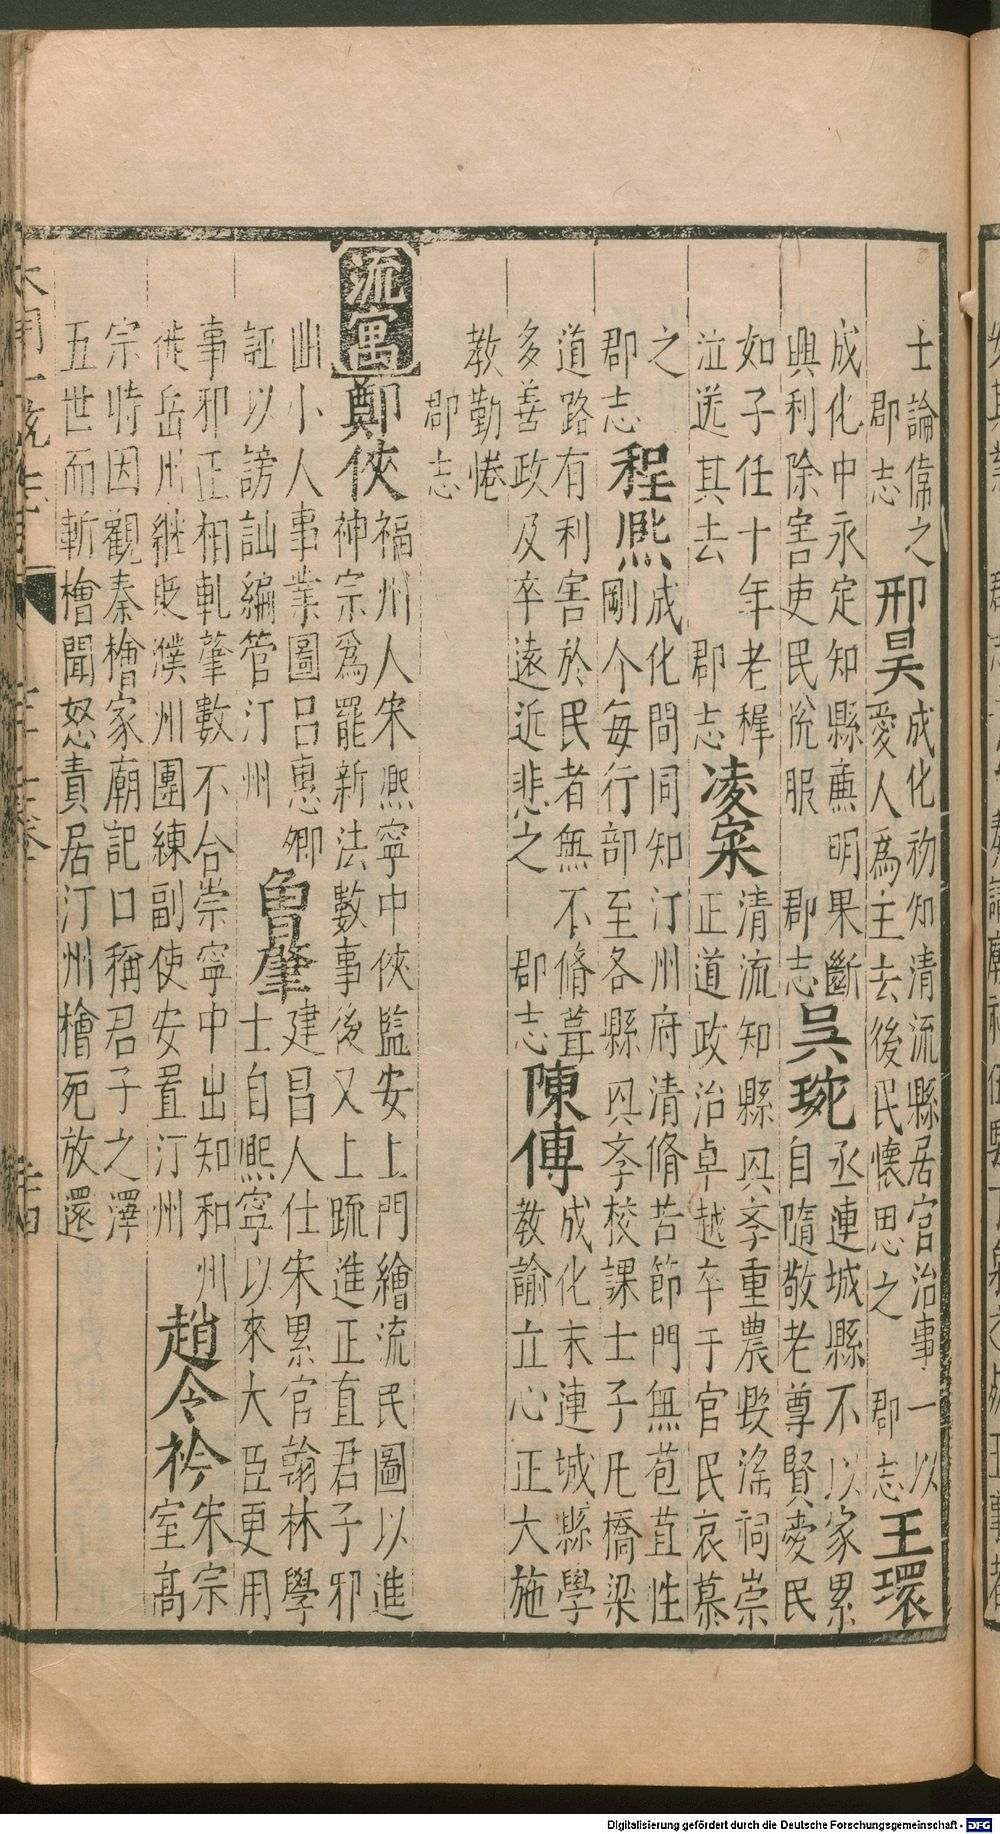 士論偉之
郡志
邢昊
成化初知清流縣居官治事一以
愛人爲主去後民懷思之 郡志
王環
成化中永定知縣廉明果斷
興利除害吏民悅服 郡志
吳琬
丞連城縣不以家累
自隨敬老尊賢愛民
如子任十年老穉
泣送其去 郡志
凌寀
清流知縣興學重農毀淫祠崇
正道政治卓越卒于官民哀慕
之
郡志
程熈
成化間同知汀州府清脩苦節門無苞苴性
剛介每行部至各縣興學校課士子凡橋梁
道路有利害於民者無不脩葺
多善政及卒遠近悲之 郡志
陳傅
成化末連城縣學
教諭立心正大施
教勤惓
郡志
流寓
鄭俠
福州人宋熈寧中俠監安上門繪流民圖以進
神宗爲罷新法數事後又上疏進正直君子邪
曲小人事業圖吕惠卿
誣以謗訕編管汀州
曾肇
建昌人仕宋累官翰林學
士自熈寧以來大臣更用
事邪正相軋肇數不合崇寧中出知和州
徙岳州継貶濮州團練副使安置汀州
趙令衿
宋宗
室高
宗時因觀秦檜家廟記口稱君子之澤
五世而斬檜聞怒責居汀州檜死放還
大明一統志